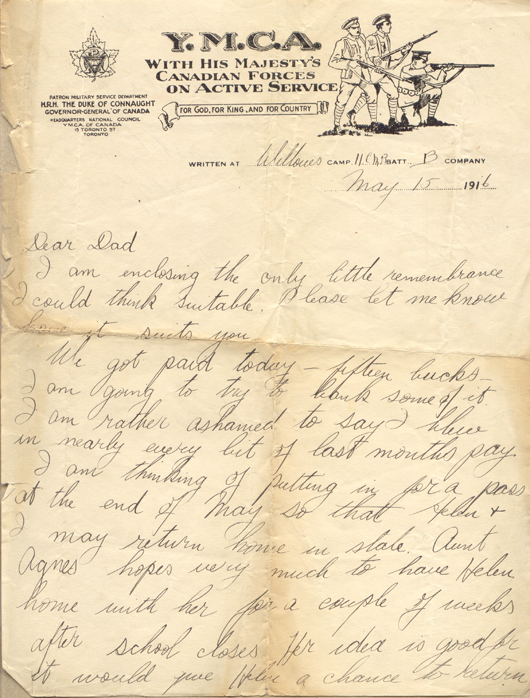 Y.M.C.A.
WITH HIS MAJESTY'S
CANADIAN FORCES
ON ACTIVE SERVICE
FOR GOD, FOR KING, AND FOR COUNTRY
PATRON MILITARY SERVICE DEPARTMENT
H.R.H. THE DUKE OF CONNAUGHT
GOVERNOR-GENERAL OF CANADA
HEADQUARTERS NATIONAL COUNCIL
Y.M.C.A. OF CANADA
15 TORONTO ST
TORONTO
WRITTEN AT Willows CAMP BATT. B COMPANY
May 15 1916
Dear Dad
I am enclosing the only little remembrance
I could think suitable. Please let me know
how it suits you
We got paid today – fifteen bucks –
I am going to try to bank some of it
I am rather ashamed to say I blew
in nearly every bit of last months pay
I am thinking of putting in for a pass
at the end of May so that Helen &
I may return home in state. Aunt
Agnes hopes very much to have Helen
home with her for a couple of weeks
after school closes Her idea is good for
it would give Helen a chance to return